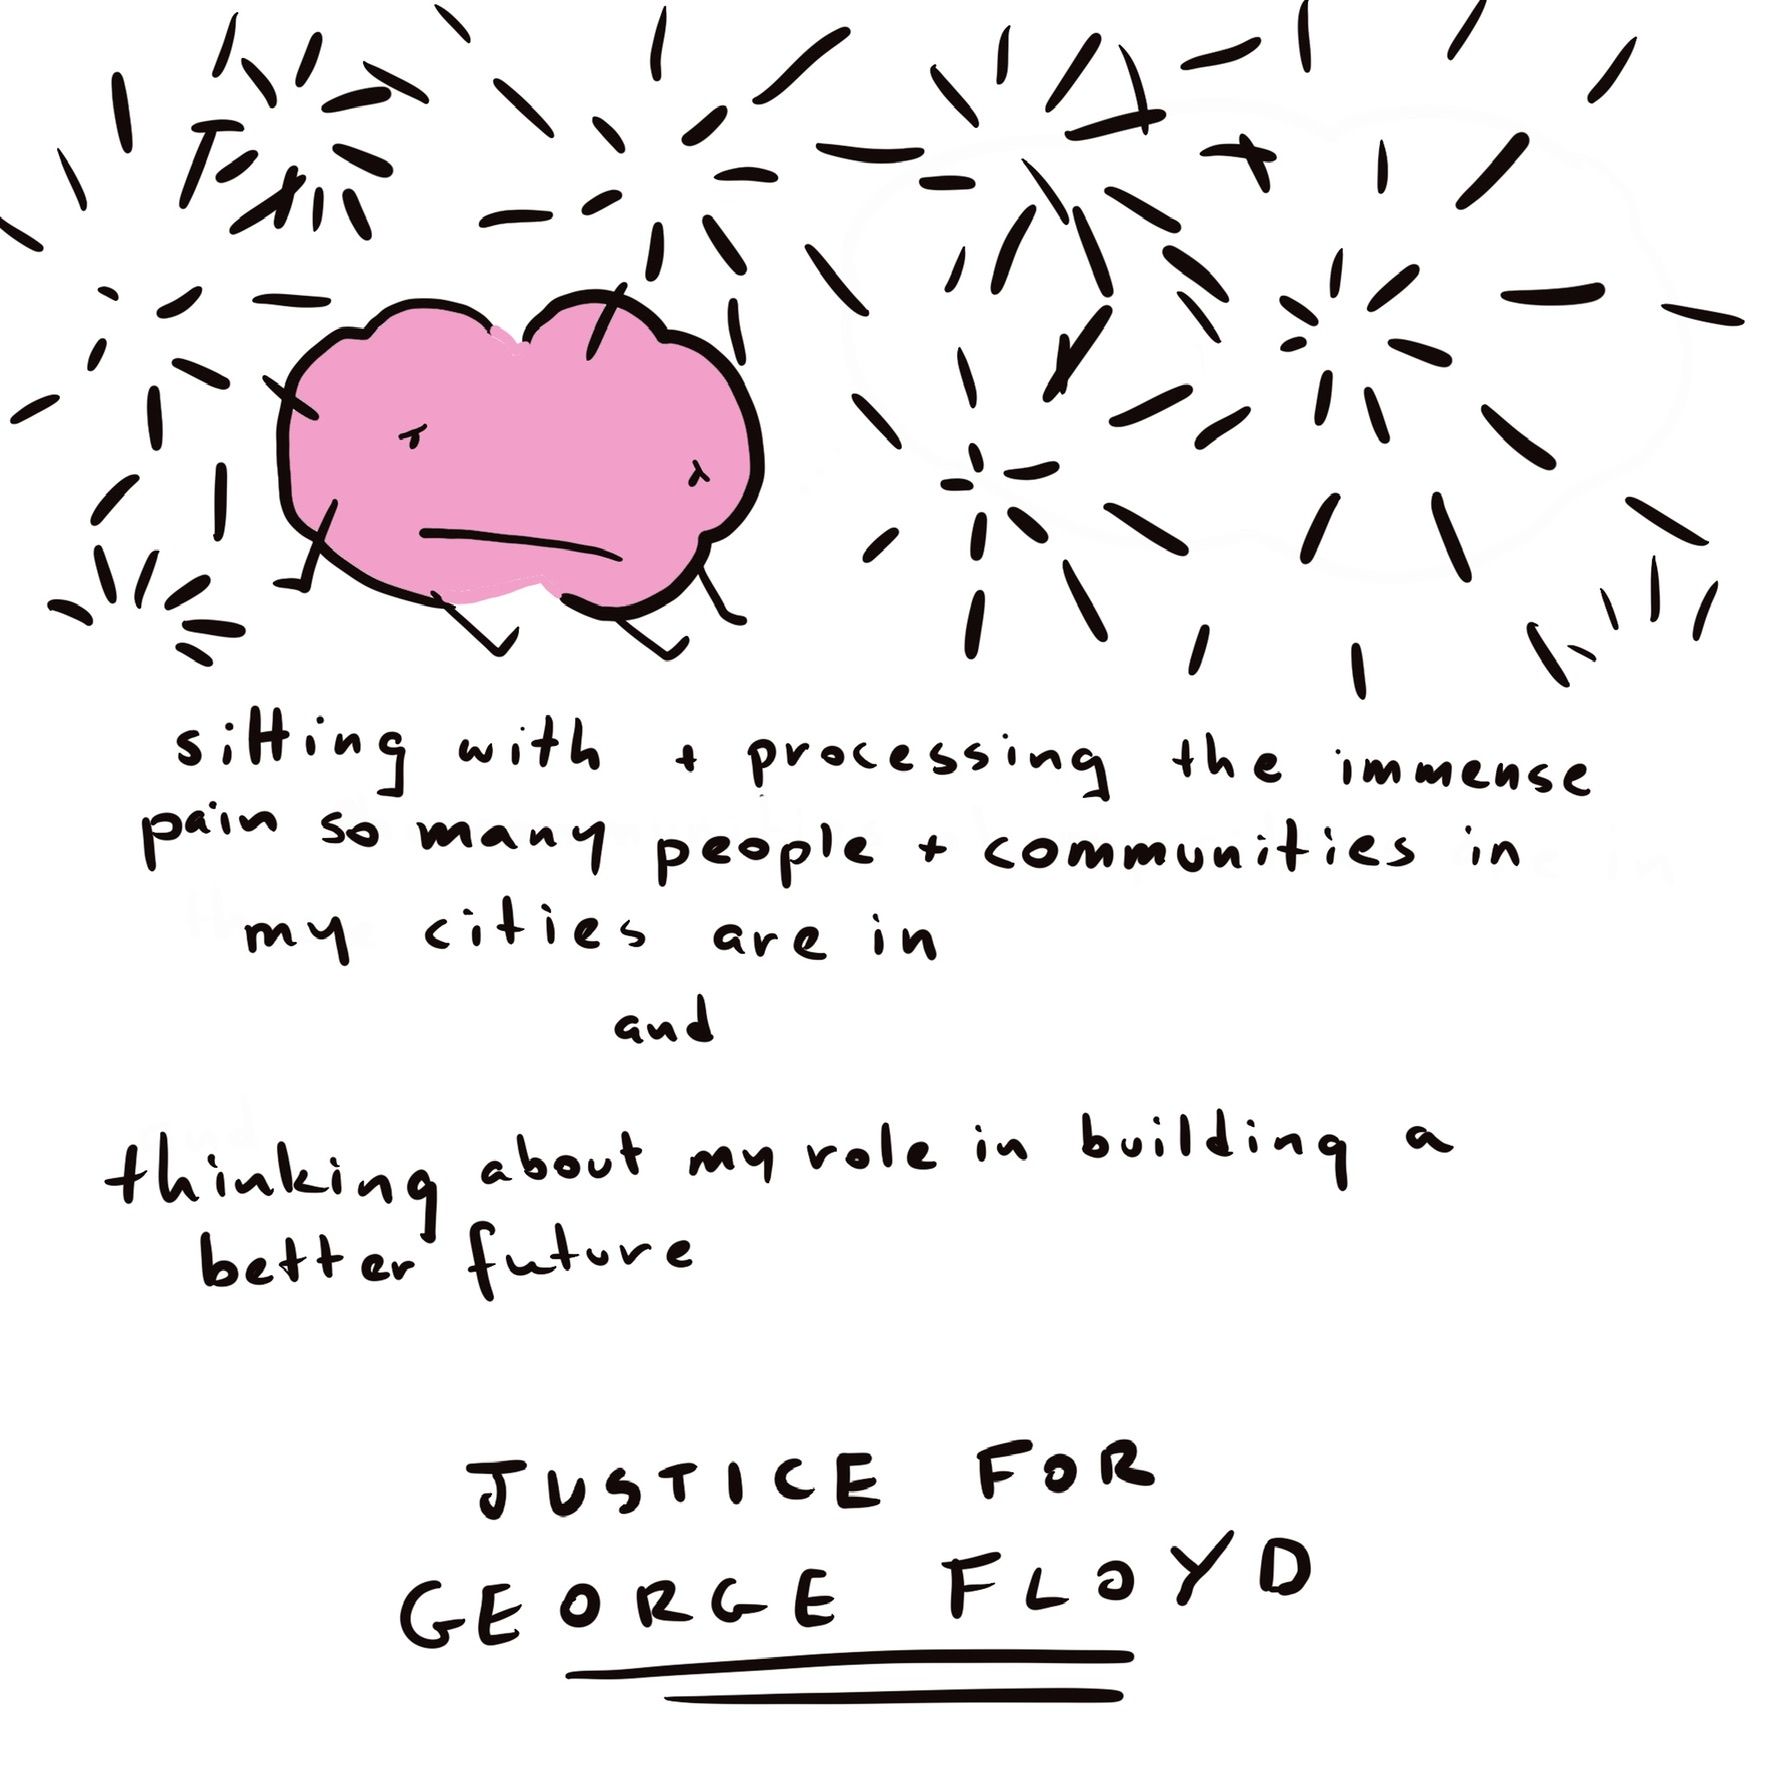 sitting with + processing the immense
pain so many people + communities in
my cities are in
and
thinking about my role in building a
better future
JUSTICE FOR
GEORGE FLOYD